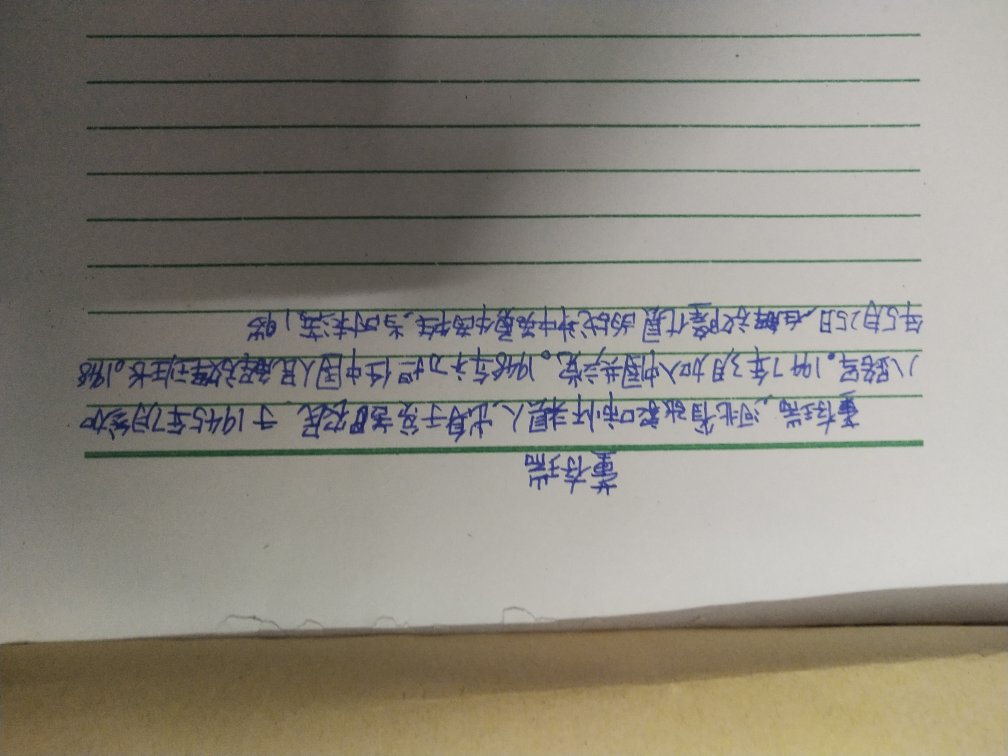 董存瑞
董存瑞,河北省张家口市怀来县人,出身于贫苦农民,于1945年7月参加
八路军。1947年3月加入中国共产党。1948年 担任中国人民解放军班长。1948
年5月25日,在解放隆化县的战斗中英勇牺牲,当时未满19岁